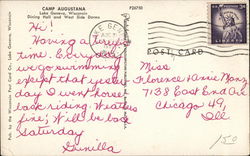 CAMP AUGUSTANA
Lake Geneva, Wisconsin
Dining Hall and West Side Dorms
P26750
Pub. by the Wisconsin Post Card Co., Lake Geneva, Wisconsin
POST CARD
Hi!
Having a
time. Everyday
we go swimming
except that yester-
day I went horse-
back riding. Weather's
fine; Will be back
Saturday
Gunilla
Miss
Florence
7138 East End Ave
Chicago 49,
Ill
1.50